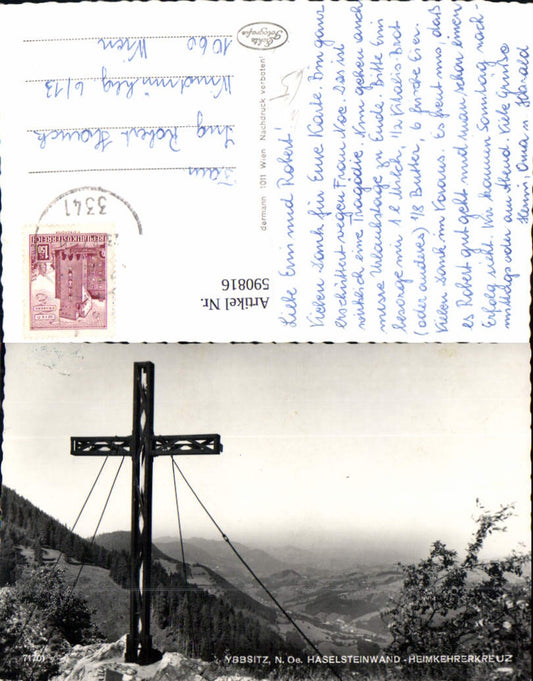 Liebe Erni und Robert!
Vielen Dank für Eure Karte. Bin ganz
erschüttert wegen Frau Noe. Das ist
wirklich eine Tragödie. Nun gehen auch
unsere Urlaubstage zu Ende. Bitte Erni
besorge mir 1 l Milch, 1/2 Vitalis Brot
(oder anderes) 1/8 Butter, 6 frische Eier.
Vielen Dank im Voraus. Es freut uns, daß
es Robert gut geht und man schon einen
Erfolg sieht. Wir kommen Sonntag nach-
mittags oder am Abend. Viele Grüße
Henni, Oma u Harald
Echte
Fotografie
dermann 1011 Wien Nachdruck verboten!
Ing Robert
6/13
1060 Wien
3341
REPUBLIK ÖSTERREICH
Artikel Nr.
590816
71701
YBBSITZ, N. Oe. HASELSTEINWAND - HEIMKEHRERKREUZ